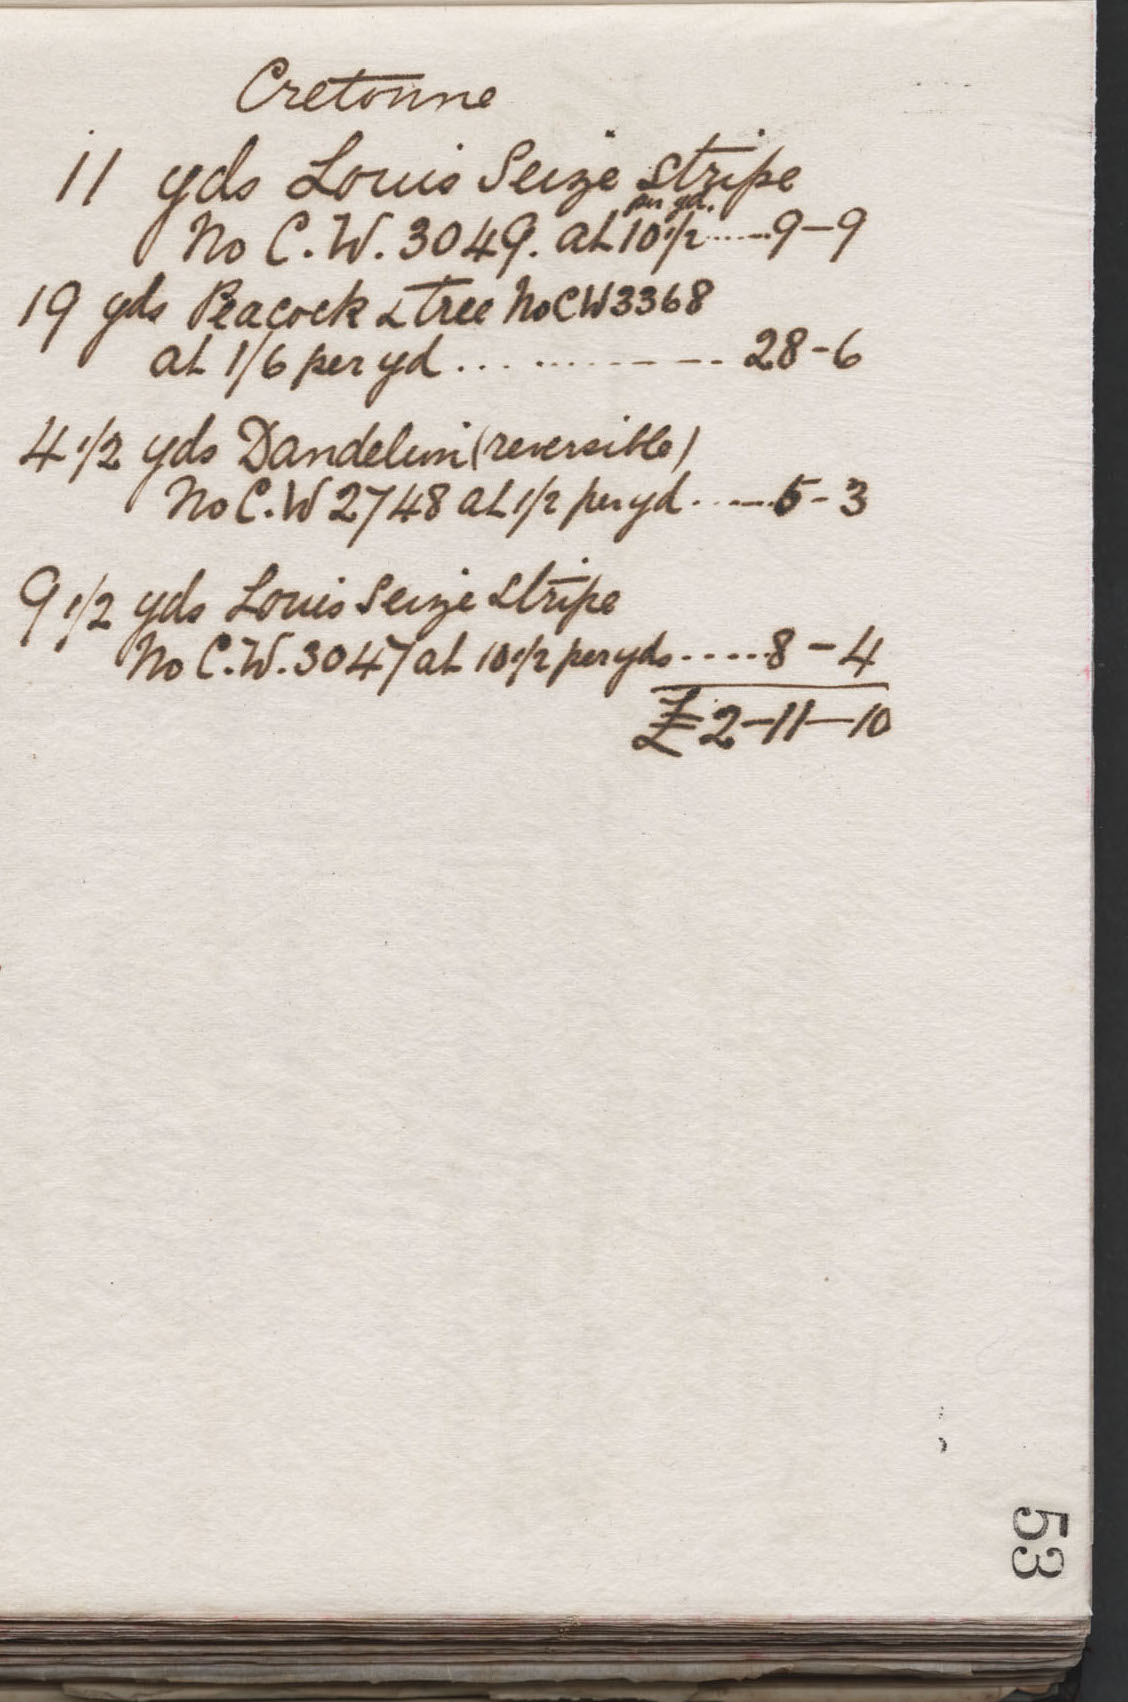 Cretonne
11 yds Louis Seize stripe
per yd.
No C.W. 3049. at 10 1/2 ......9-9
19 yds Peacock & tree No CW3368
at 1/6 per yd ............ 28-6
4 1/2 yds Dandelion (reversible)
No C.W 2748 at 1/2 per yd ......5-3
9 1/2 yds Louis Seize stripe
No C.W. 3047 at 10 1/2 per yds ......8-4
£2-11-10
53